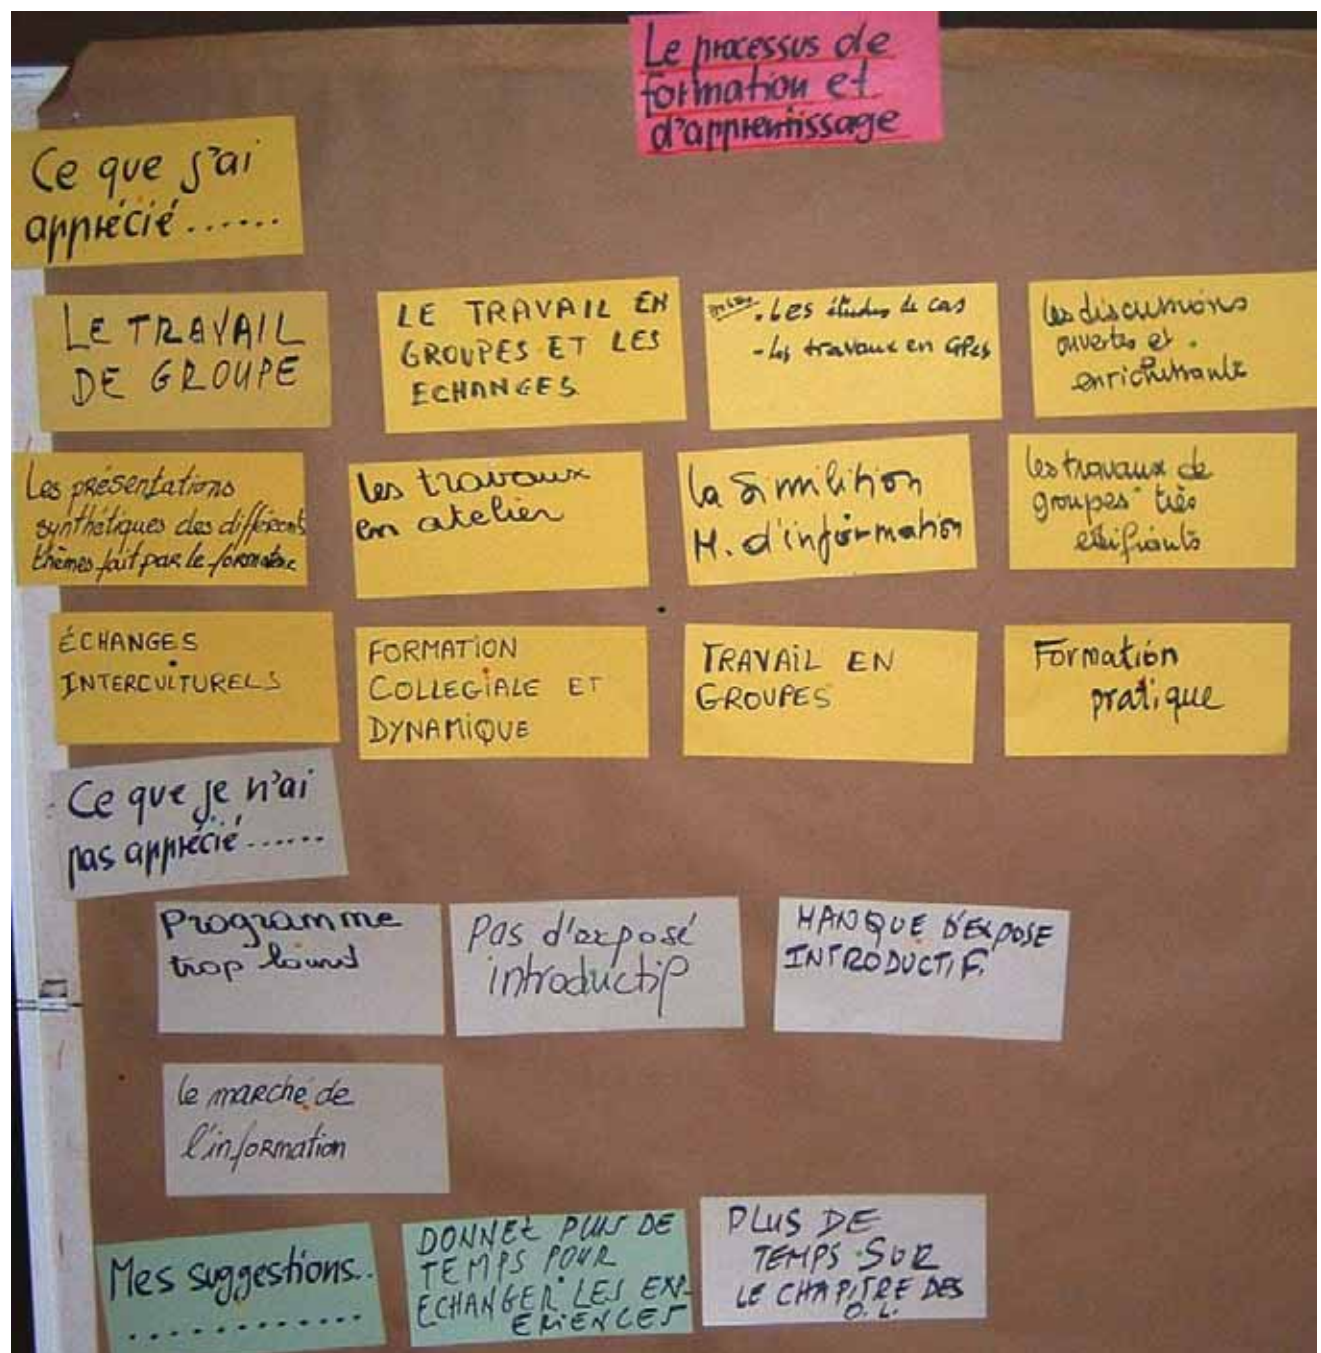 Le processus de
formation et
d'apprentissage
Ce que j'ai
apprécié......
LE TRAVAIL
DE GROUPE
LE TRAVAIL EN
GROUPES ET LES
ECHANGES
. Les études de cas
- les travaux en GPes
les discussions
ouvertes et
enrichissants
Les présentations
synthétiques des différents
thèmes fait par le formateur
les travaux
en atelier
la Similition
M. d'information
les travaux de
groupes très
édifiants
ÉCHANGES
INTERCULTURELS
FORMATION
COLLEGIALE ET
DYNAMIQUE
TRAVAIL EN
GROUPES
Formation
pratique
Ce que je n'ai
pas apprécié......
Programme
trop lourd
Pas d'exposé
introductif
MANQUE D'EXPOSE
INTRODUCTIF.
le marché de
l'information
Mes suggestions..
............
DONNEZ PLUS DE
TEMPS POUR
ECHANGER LES EXP-
ERIENCES
PLUS DE
TEMPS SUR
LE CHAPITRE DES
O.L.